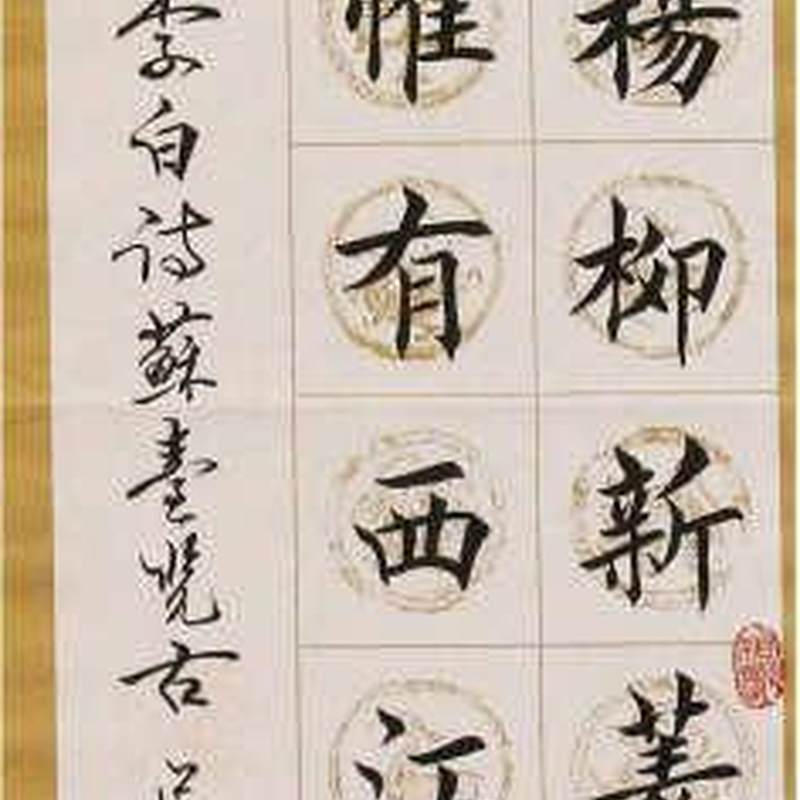 楊柳新菱
惟有西江
李白詩蘇臺覽古